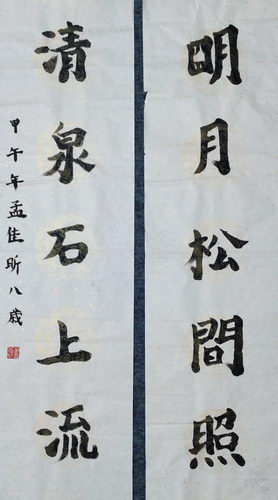 明月松間照
清泉石上流
甲午年孟佳昕八歲